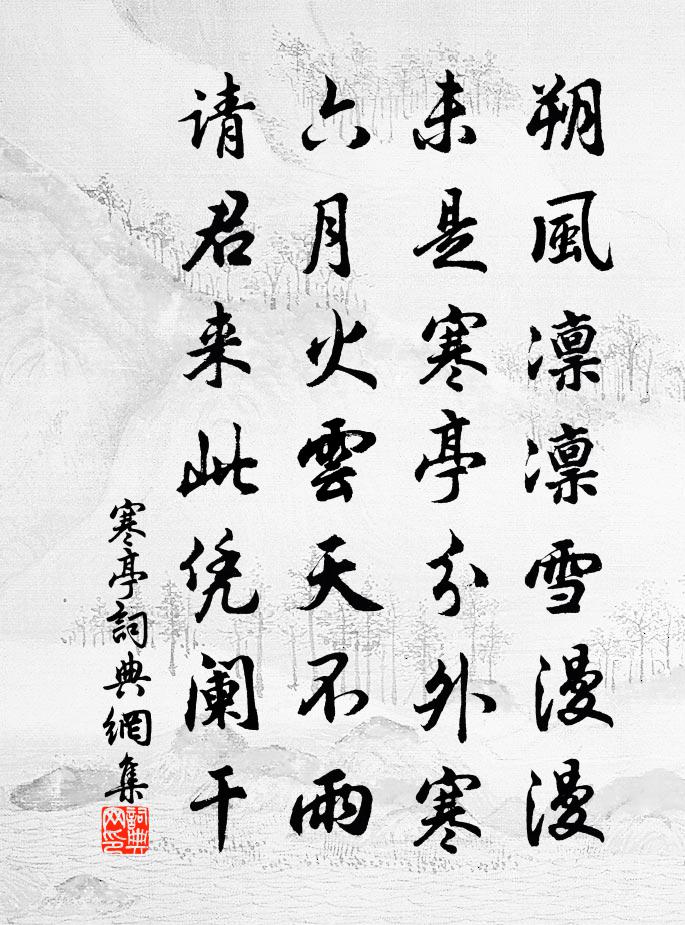 朔風凛凛雪漫漫
未是寒亭分外寒
六月火雲天不雨
请君来此凭阑干
寒亭詞典網集
詞典网印